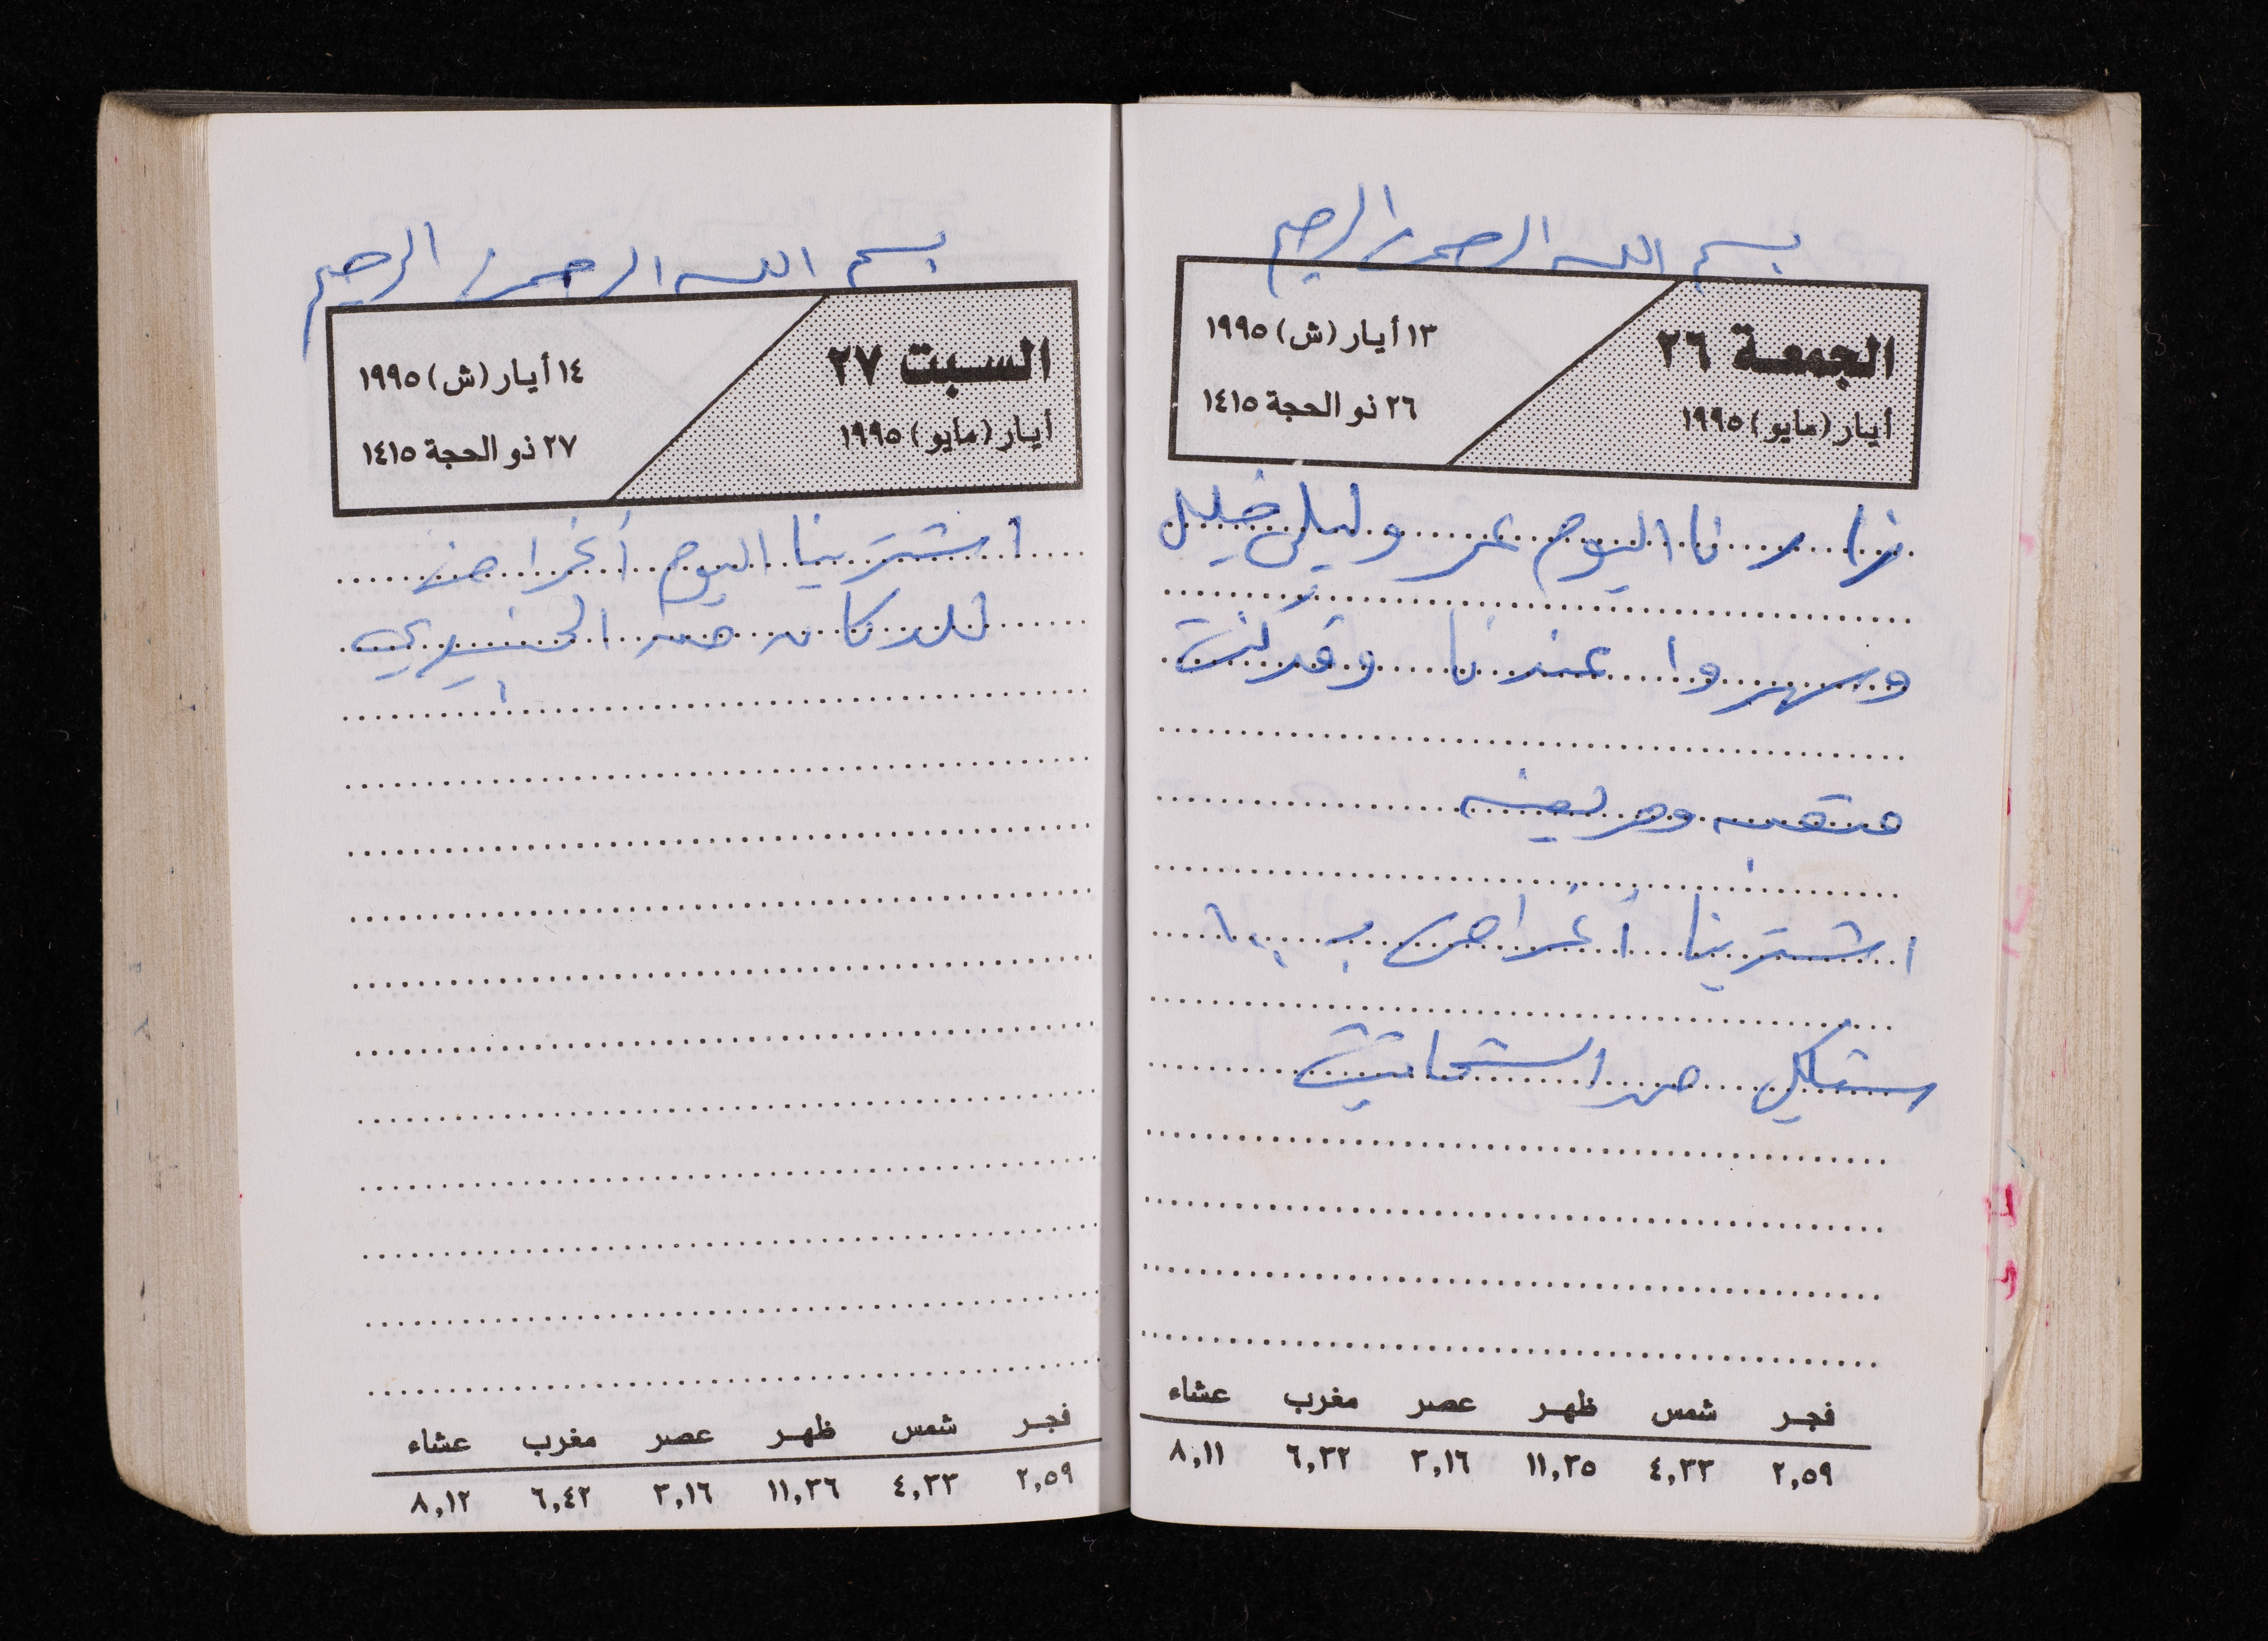 بسم الله الرحمن الرحيم
الجمعة ٢٦
أيار (مايو) ١٩٩٥
١٣ أيار (ش) ١٩٩٥
٢٦ ذو الحجة ١٤١٥
زارنا اليوم عمر وليلى خليل
وسهروا عندنا وقد كنت
متعبه ومريضه
اشترينا أغراض ب ٦٠٠
ستيكل من
فجر شمس ظهر عصر مغرب عشاء
٢,٥٩ ٤,٣٣ ١١,٣٥ ٣,١٦ ٦,٣٢ ٨,١١
بسم الله الرحمن الرحيم
السبت ٢٧
أيار (مايو) ١٩٩٥
١٤ أيار (ش) ١٩٩٥
٢٧ ذو الحجة ١٤١٥
اشترينا اليوم أغراض
للدكان من
فجر شمس ظهر عصر مغرب عشاء
٢,٥٩ ٤,٣٣ ١١,٣٦ ٣,١٦ ٦,٤٢ ٨,١٢